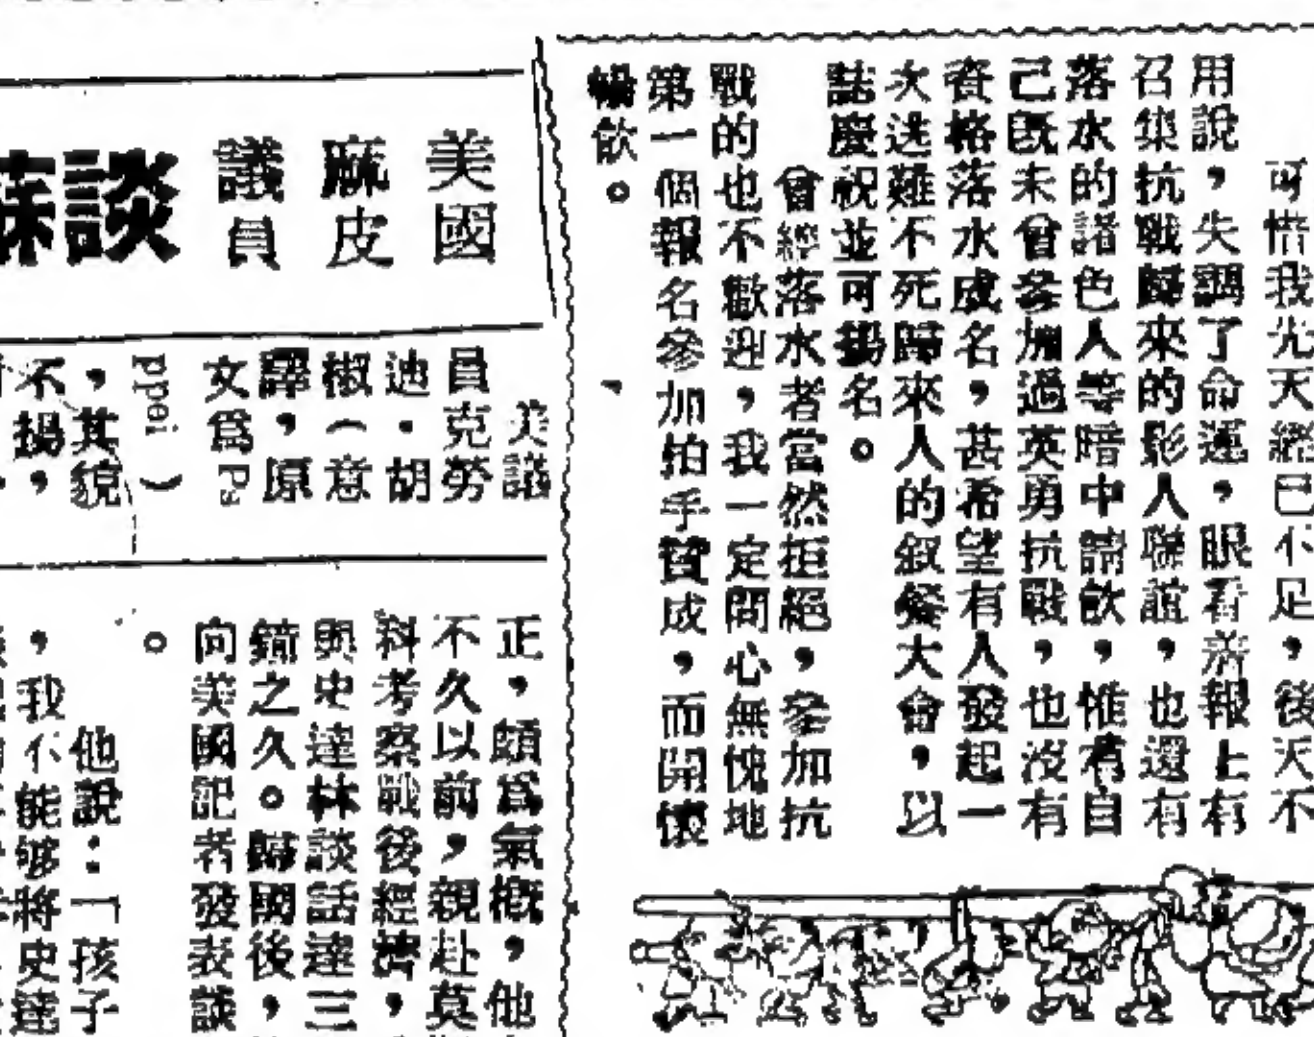 可惜我先天經已不足,後天不
用說,失調了命運,眼看滬報上有
召集抗戰歸來的影人聯誼,也還有
落水的諸色人等暗中請飲,惟有自
己旣未曾參加過英勇抗戰,也沒有
資格落水成名,甚希望有人發起一
次逃難不死歸來人的叙餐大會,以
誌慶祝並可揚名。
曾經落水者當然拒絕,參加抗
戰的也不歡迎,我一定問心無愧地
第一個報名參加拍手贊成,而開懷
暢飲。
美國
麻皮
議員
談蘇
美議
員克勞
迪·胡
椒(意
譯,原
文爲Pa
ppei)
,其貌
不揚,
正,頗爲氣概,他
不久以前,親赴莫
科考察戰後經濟,
與史達林談話達三
鐘之久。歸國後,
向美國記者發表談
。
他說:「孩子
,我不能够將史達